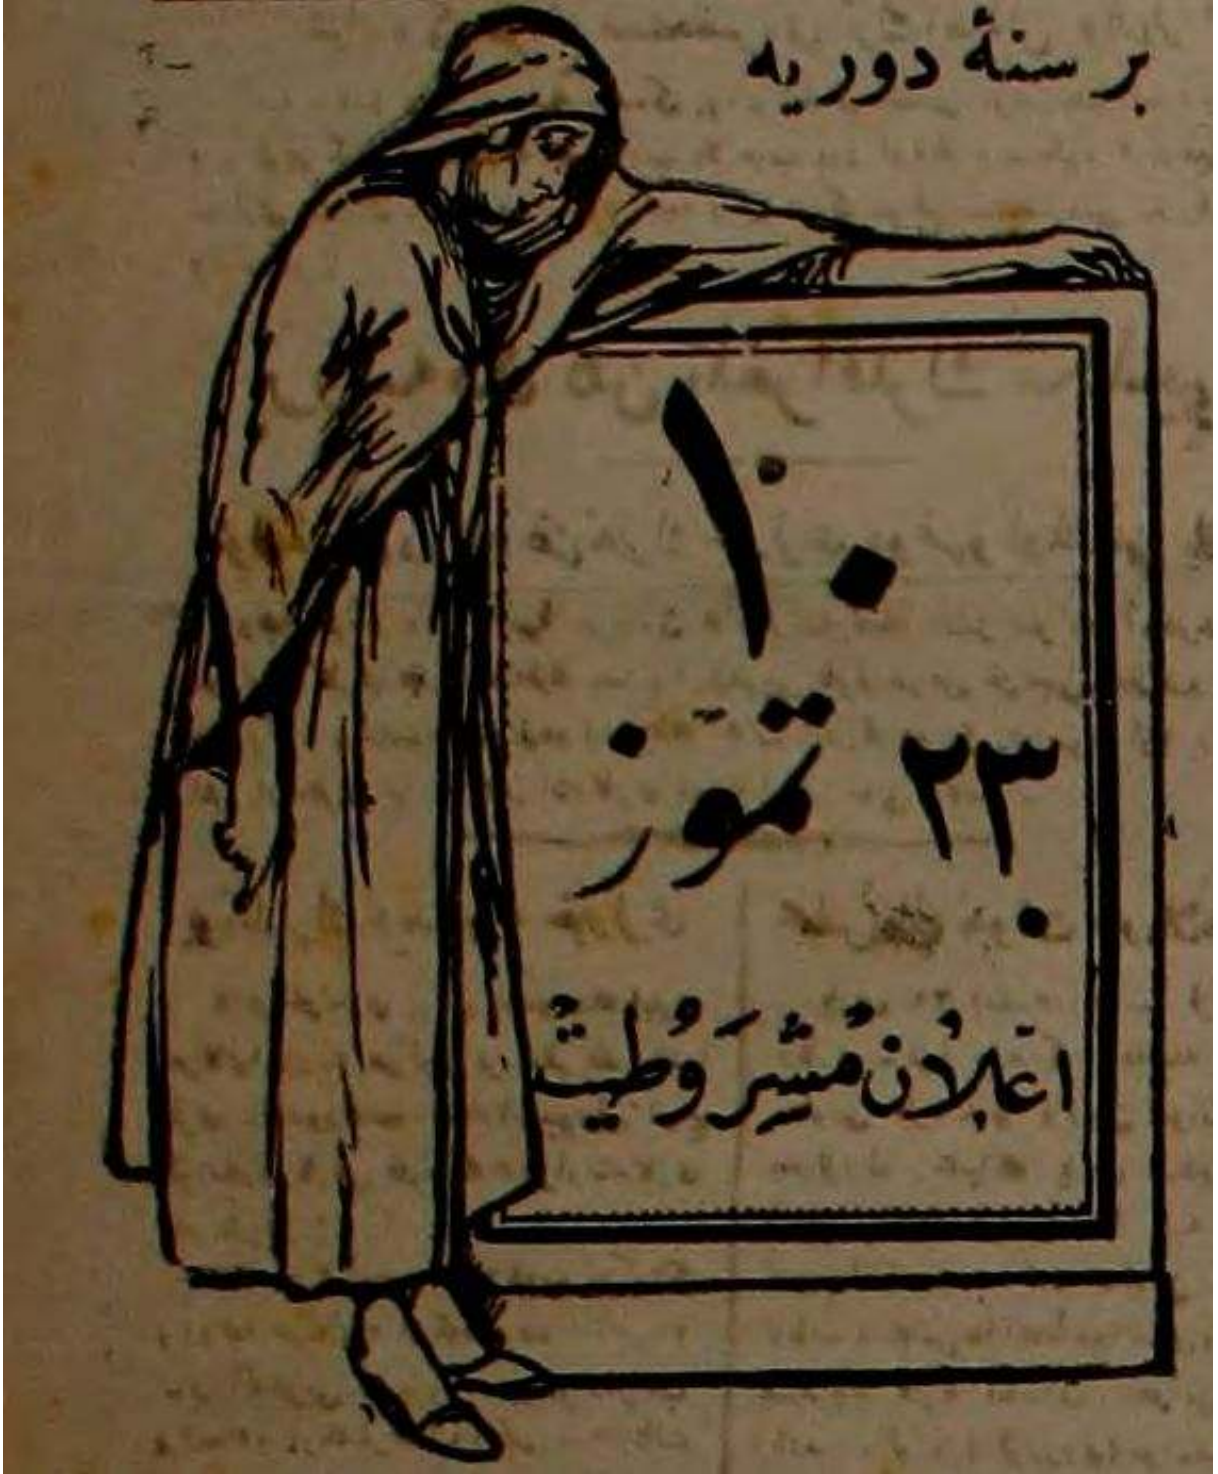 بر سنهٔ دوریه
١٠
٢٣ تموز
اعلان مشروطیت